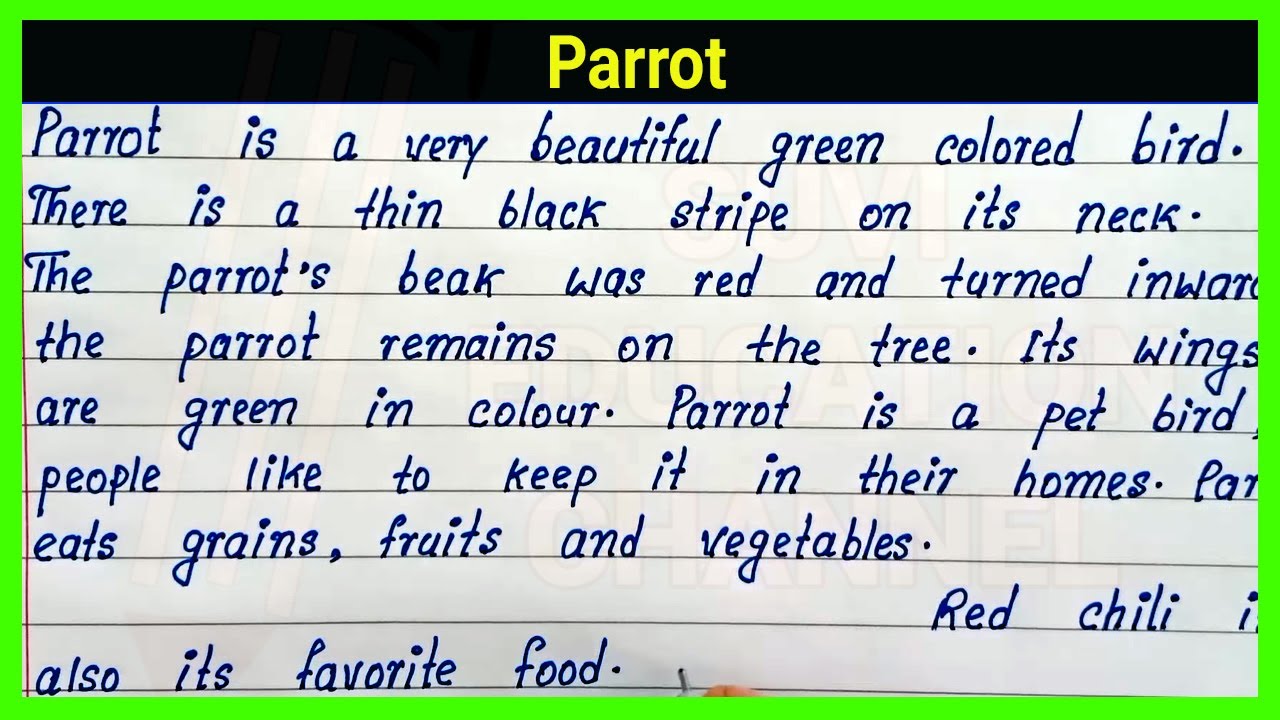 Parrot
Parrot is a very beautiful green colored bird.
There is a thin black stripe on its neck.
The parrot's beak was red and turned inward
the parrot remains on the tree. Its wings
are green in colour. Parrot is a pet bird,
people like to keep it in their homes. Par
eats grains, fruits and vegetables.
Red chili i
also its favorite food.
SUVI
EDUCATION
CHANNEL